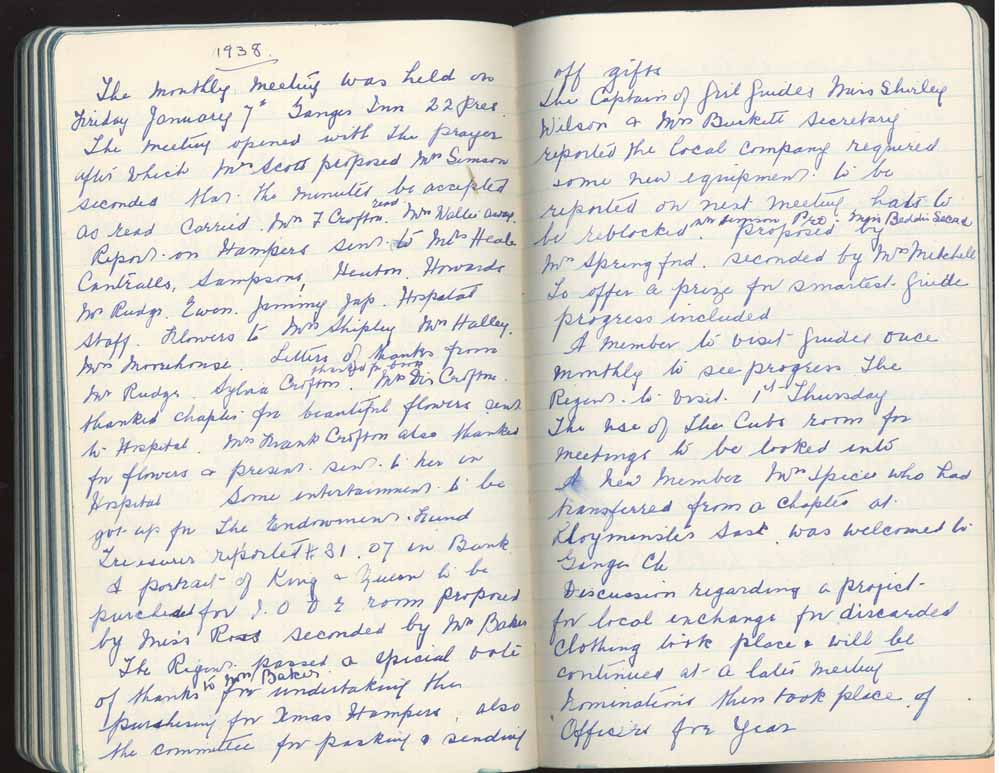 1938.
The monthly meeting was held on
Friday January 7th Ganges Inn 22 pres
The meeting opened with the prayer
after which Mrs Scott proposed Mrs Simson
seconded that the minutes be accepted
as read Carried. Mrs F Crofton read Mrs Walter away
Report on Hampers sent to Mrs Heale
Cantrells, Sampsons, Heuton, Howards
Mr Rudge. Ewen. Jimmy Jap. Hospital
staff. Flowers to Mrs Shipley Mrs Halley.
Mrs Moorhouse. Letters of thanks from
Mr Rudge. Sylvia Crofton thanked for book. Mrs Des Crofton.
thanked chapter for beautiful flowers sent
to Hospital. Mrs Frank Crofton also thanked
for flowers & present sent to her in
Hospital Some entertainment to be
got up for the Endowment Fund
Treasurer reported $31.07 in Bank
A portrait of King & Queen to be
purchased for I.O.D.E room proposed
by Miss Ross seconded by Mrs Baker
The Regent passed a special vote
of thanks to Mrs Baker for undertaking the
purchasing for Xmas Hampers, also
the committee for packing & sending
off gifts
The Captain of Gril Guides Miss Shirley
Wilson & Mrs Burkett Secretary
reported the local company required
some new equipment. to be
reported on next meeting, hats to
be reblocked Mrs Simson Pro. Miss Beddis Secas
proposed by
Mrs Springford. seconded by Mrs Mitchell
To offer a prize for smartest Guide
progress included
A member to visit guides once
monthly to see progress The
Regent to visit 1st Thursday
The use of the Cubs room for
meetings to be looked into
A New Member Mrs Spicer who had
transferred from a chapter at
Lloyminster Sask. was welcomed to
Ganges Ch
Discussion regarding a project
for local exchange for discarded
clothing took place & will be
continued at a later meeting
Nominations then took place of
Officers for Year